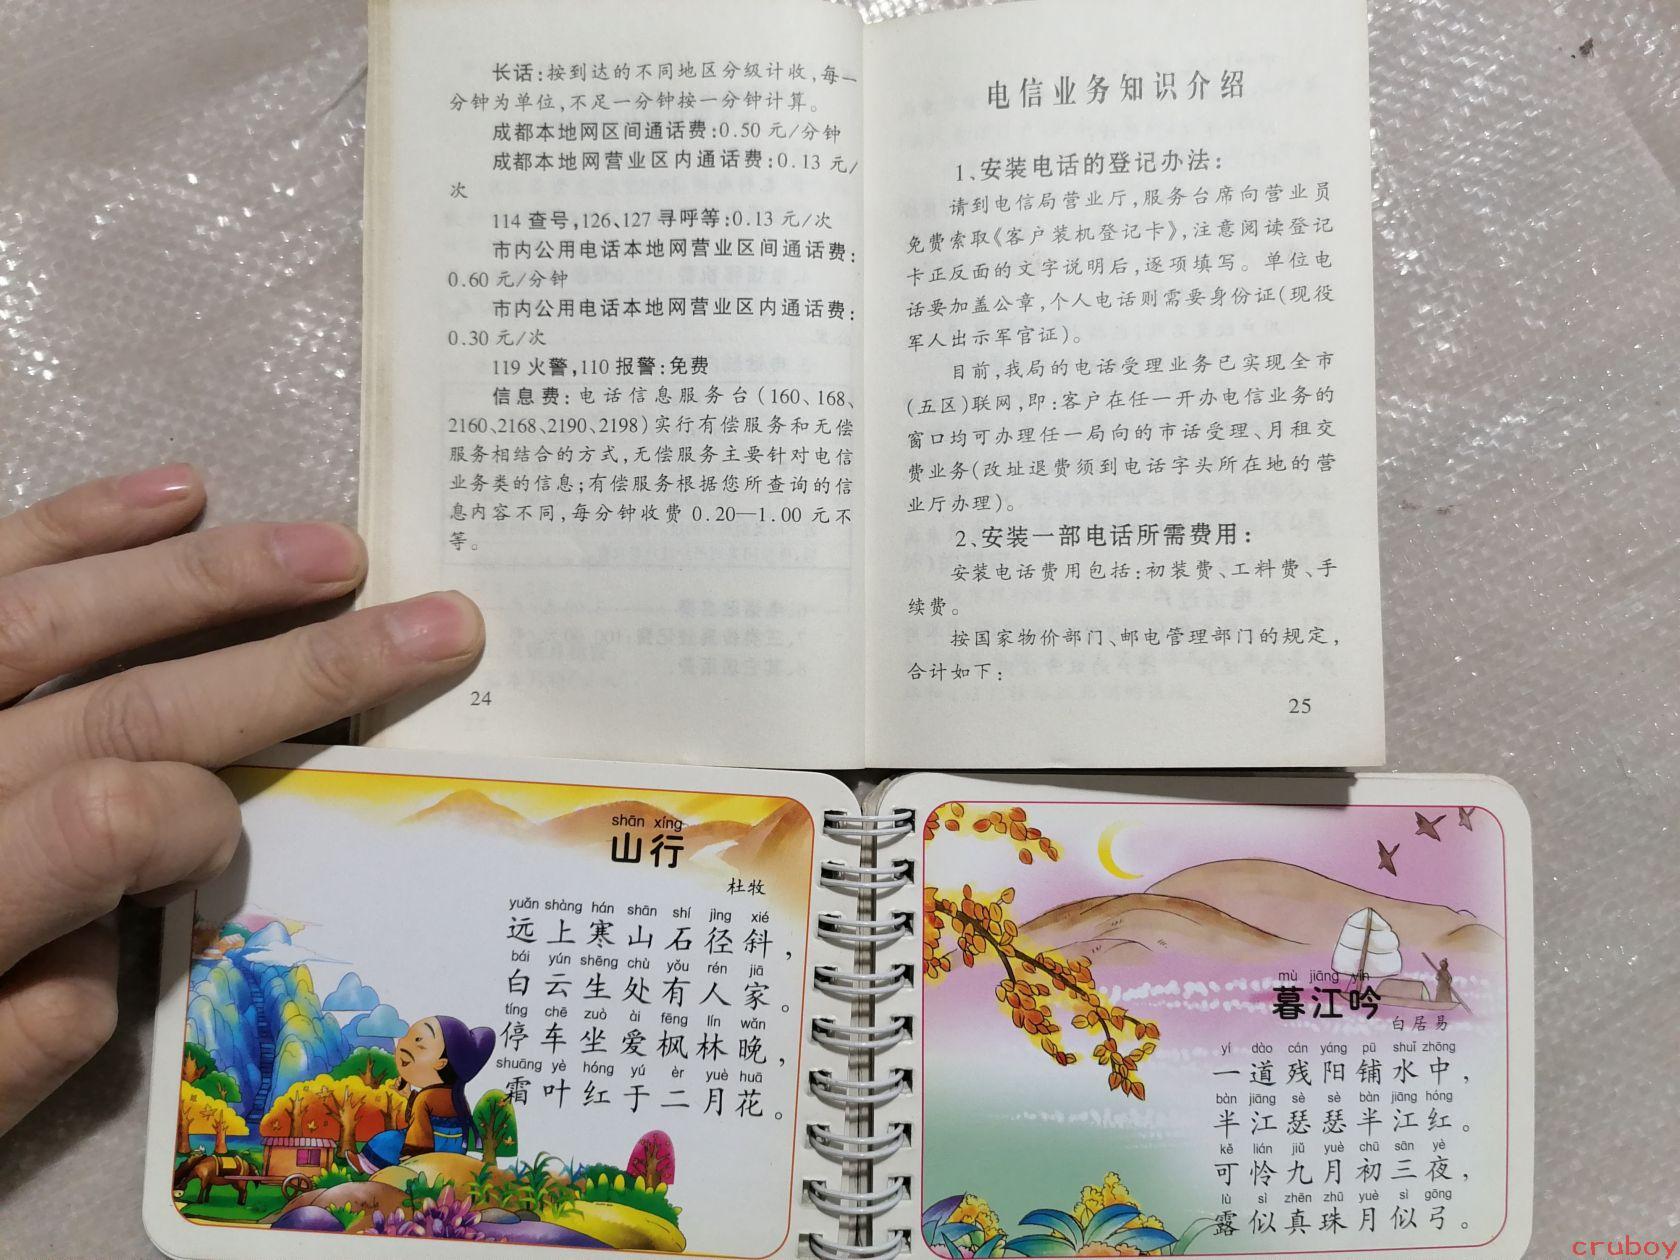 长话:按到达的不同地区分级计收,每一
分钟为单位,不足一分钟按一分钟计算。
成都本地网区间通话费:0.50元/分钟
成都本地网营业区内通话费:0.13元/
次
114查号,126、127寻呼等:0.13元/次
市内公用电话本地网营业区间通话费:
0.60元/分钟
市内公用电话本地网营业区内通话费:
0.30元/次
119火警,110报警:免费
信息费:电话信息服务台(160、168、
2160、2168、2190、2198)实行有偿服务和无偿
服务相结合的方式,无偿服务主要针对电信
业务类的信息;有偿服务根据您所查询的信
息内容不同,每分钟收费0.20—1.00元不
等。
24
电信业务知识介绍
1、安装电话的登记办法:
请到电信局营业厅,服务台席向营业员
免费索取《客户装机登记卡》,注意阅读登记
卡正反面的文字说明后,逐项填写。单位电
话要加盖公章,个人电话则需要身份证(现役
军人出示军官证)。
目前,我局的电话受理业务已实现全市
(五区)联网,即:客户在任一开办电信业务的
窗口均可办理任一局向的市话受理、月租交
费业务(改址退费须到电话字头所在地的营
业厅办理)。
2、安装一部电话所需费用:
安装电话费用包括:初装费、工料费、手
续费。
按国家物价部门、邮电管理部门的规定,
合计如下:
25
shān xíng
山行
杜牧
yuǎn shàng hán shān shí jìng xié
远上寒山石径斜,
bái yún shēng chù yǒu rén jiā
白云生处有人家。
tíng chē zuò ài fēng lín wǎn
停车坐爱枫林晚,
shuāng yè hóng yú èr yuè huā
霜叶红于二月花。
mù jiāng yín
暮江吟
白居易
yí dào cán yáng pū shuǐ zhōng
一道残阳铺水中,
bàn jiāng sè sè bàn jiāng hóng
半江瑟瑟半江红。
kě lián jiǔ yuè chū sān yè
可怜九月初三夜,
lù sì zhēn zhū yuè sì gōng
露似真珠月似弓。
cruboy